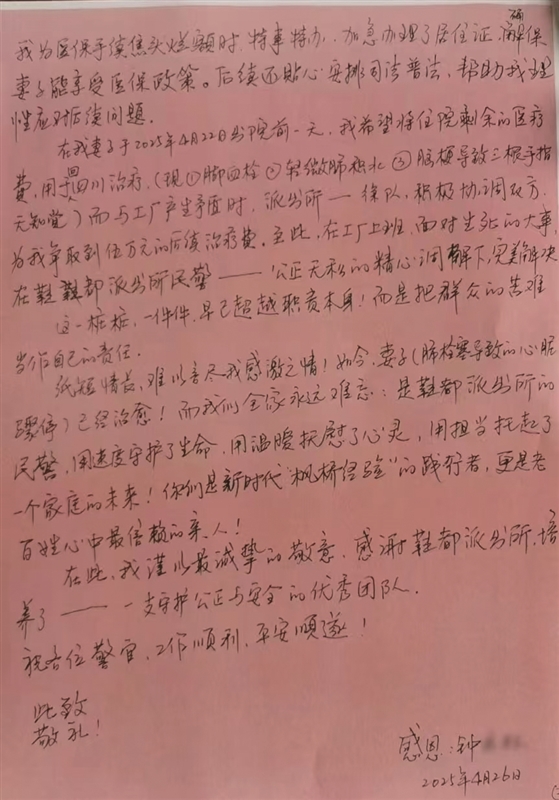 确
我为医保手续焦头烂额时，特事特办、加急办理了居住证，解保
妻子能享受医保政策。后续还贴心安排司法普法，帮助我理
性应对后续问题。
在我妻子于2025年4月22日出院前一天，我希望将住院剩余的医疗
费，用于回四川治疗，（现①脚血栓②轻微肺积水③脑梗导致三根手指
无知觉）而与工厂产生矛盾时，派出所——徐队，积极协调双方，
为我争取到伍万元的后续治疗费。至此，在工厂上班，面对生死的大事，
在鞋都派出所民警——公正无私的精心调解下，完美解决
这一桩桩，一件件，早已超越职责本身！而是把群众的苦难
当作自己的责任.
纸短情长，难以言尽我感激之情！如今，妻子（肺栓塞导致的心脏
骤停）已经治愈！而我们全家永远难忘：是鞋都派出所的
民警，用速度守护了生命，用温暖抚慰了心灵，用担当托起了
一个家庭的未来！你们是新时代“枫桥经验”的践行者，更是老
百姓心中最信赖的亲人！
在此，我谨以最诚挚的敬意，感谢鞋都派出所，培
养了——一支守护公正与安全的优秀团队.
祝各位警官，工作顺利，平安顺遂！
此致
敬礼！
感恩：钟
2025年4月26日